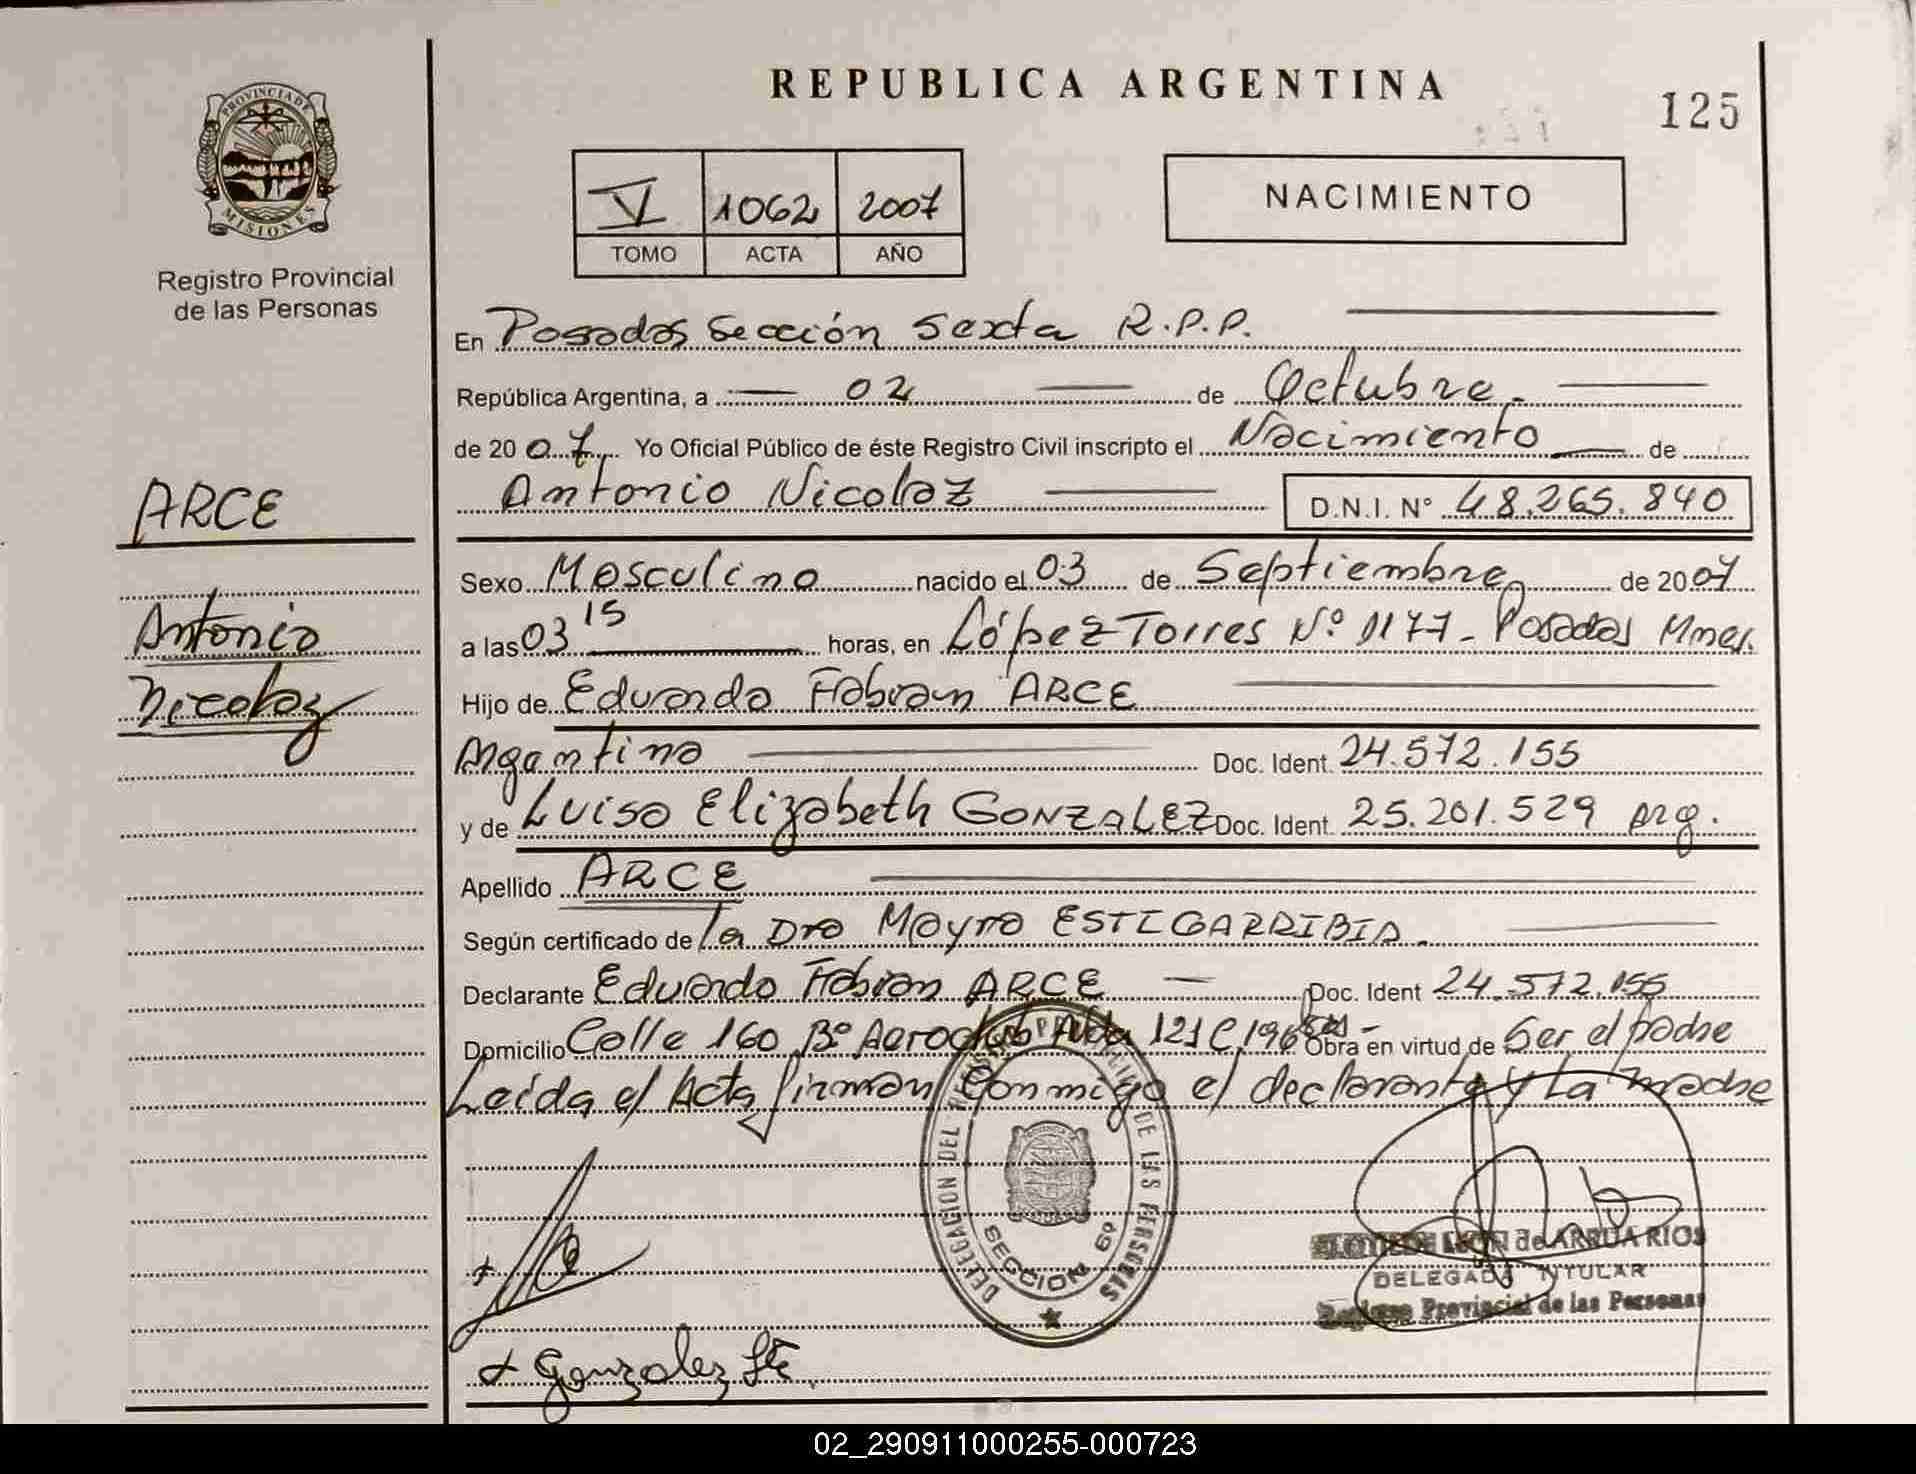 REPUBLICA ARGENTINA
125
PROVINCIA DE
MISIONES
Registro Provincial
de las Personas
V 1062 2007
TOMO ACTA AÑO
NACIMIENTO
En Posadas Sección Sexta R.P.P.
República Argentina, a 02 de Octubre.
de 20 07 Yo Oficial Público de éste Registro Civil inscripto el Nacimiento de
Antonio Nicolaz D.N.I. N° 48.265.840
ARCE
Antonio
Nicolaz
Sexo Masculino nacido el 03 de Septiembre de 2007
a las 03 15 horas, en López Torres Nº 1177 - Posadas Mnes.
Hijo de Eduardo Fabian ARCE
Argentino Doc. Ident. 24.572.155
y de Luisa Elizabeth GONZALEZ Doc. Ident. 25.201.529 arg.
Apellido ARCE
Según certificado de la Dra Mayra ESTIGARRIBIA.
Declarante Eduardo Fabian ARCE Doc. Ident 24.572.155
Domicilio Calle 160 Bº Aeroclub 121 C 196 Obra en virtud de Ser el padre
Leída el Acta firman conmigo el declarante y La madre
DELEGACION DEL REGISTRO PROVINCIAL DE LAS PERSONAS
SECCION 6º
de ARRUA RIOS
DELEGADA TITULAR
Registro Provincial de las Personas
Gonzalez
02_290911000255-000723